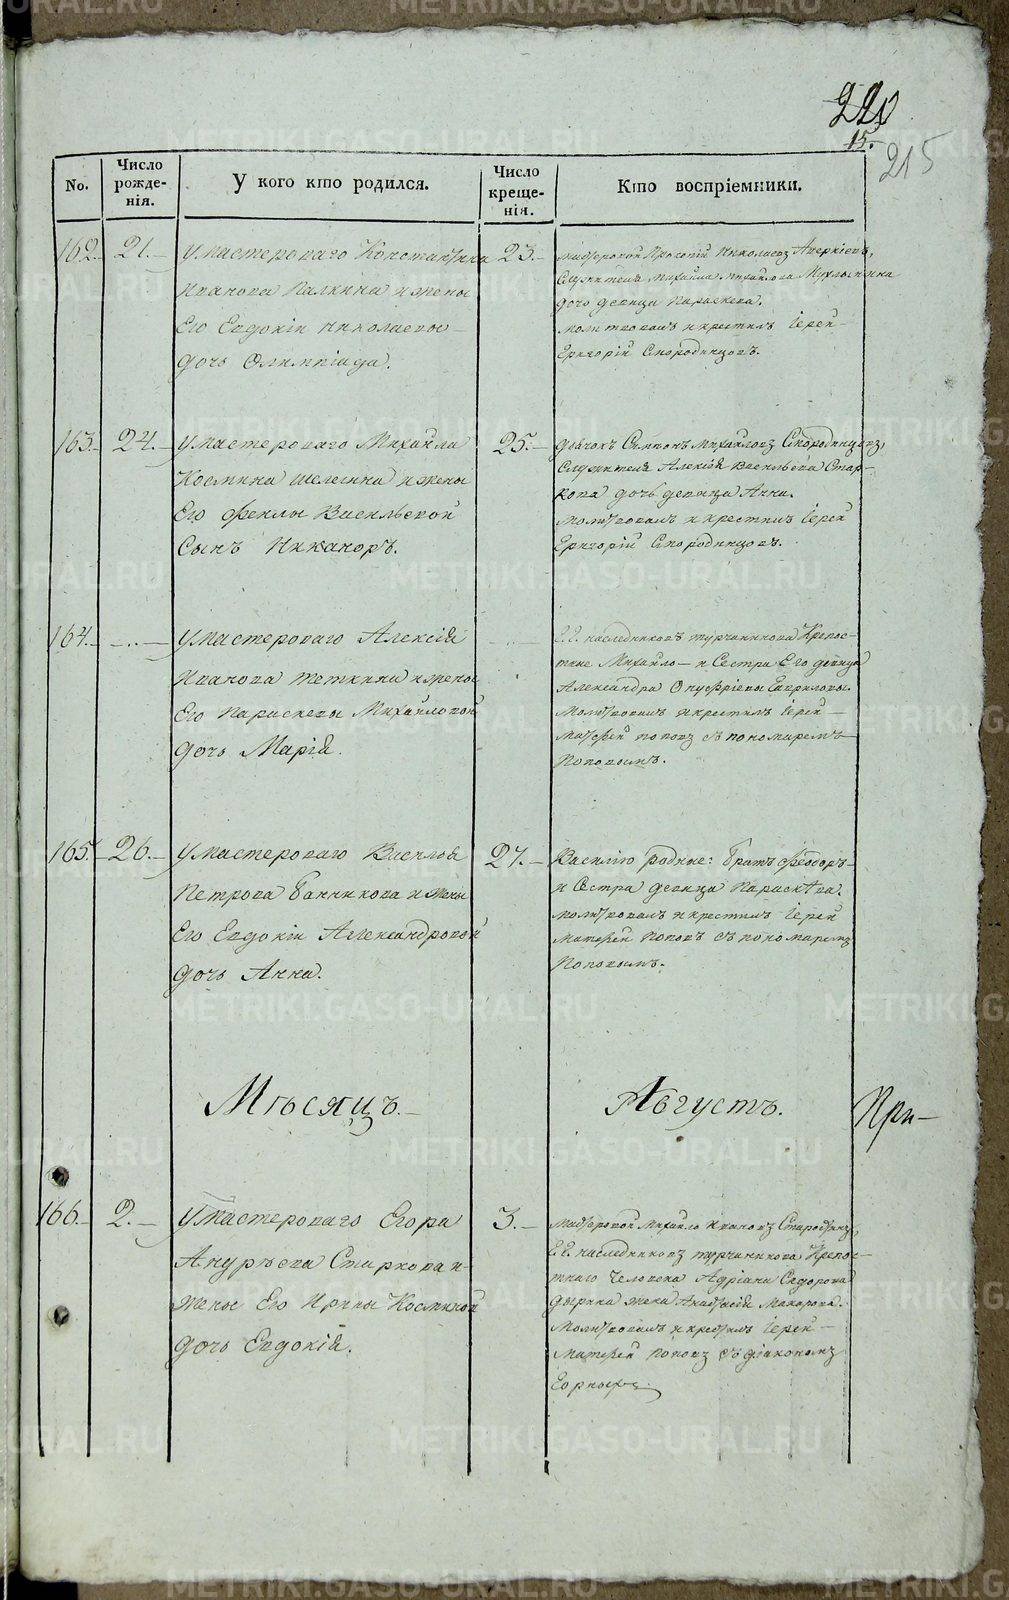 220
15.
215
No.
Число рожденія.
У кого кто родился.
Число крещенія.
Кто воспріемники.
162. 21.
У мастероваго Константина
Иванова Палкина и жены
Его Евдокіи Николаевы
дочь Олимпіада.
23.
Мастеровой Прокопій Николаевъ Аверкіевъ,
Служителя Михайла Михайлова Мухлынина
дочь девица Параскева.
молитвовалъ и крестилъ Іерей
Григорій Смородинцовъ.
163. 24.
У мастероваго Михайла
Космина Шелегина и жены
Его Феклы Васильевой
Сынъ Никаноръ.
25.
Дьячокъ Симеонъ Михайловъ Смородинцовъ,
Служителя Алексія Васильева Стар-
кова дочь девица Анна.
молитвовалъ и крестилъ Іерей
Григорій Смородинцовъ.
164.
У Мастероваго Алексія
Иванова Теткина и жены
Его Параскевы Михайловой
дочь Марія.
Г. Г. наследниковъ Турчанинова Крепос-
тные Михайло и Сестра Его девица
Александра Онуфріевы Гавриловы.
Молитвовалъ и крестилъ Іерей
Матфей Поповъ съ пономаремъ
Поповымъ.
165. 26.
У Мастероваго Василья
Петрова Банникова и жены
Его Евдокіи Александровой
дочь Анна.
27.
Василію родные: братъ Феодоръ
и Сестра девица Параскева.
молитвовалъ и крестилъ Іерей
Матфей Поповъ съ пономаремъ
Поповымъ.
Мѣсяцъ. Августъ.
При
166. 2.
У Мастероваго Егора
Андрѣева Старкова и
жены Его Ирины Косминой
дочь Евдокія.
3.
Мастеровой Михайло Ивановъ Старостинъ,
Г. Г. наследниковъ Турчанинова Крепос-
тнаго человека Адріана Сидорова
жена Анастасія Макарова.
Молитвовалъ и крестилъ Іерей
Матфей Поповъ съ діакономъ
METRIKI.GASO-URAL.RU